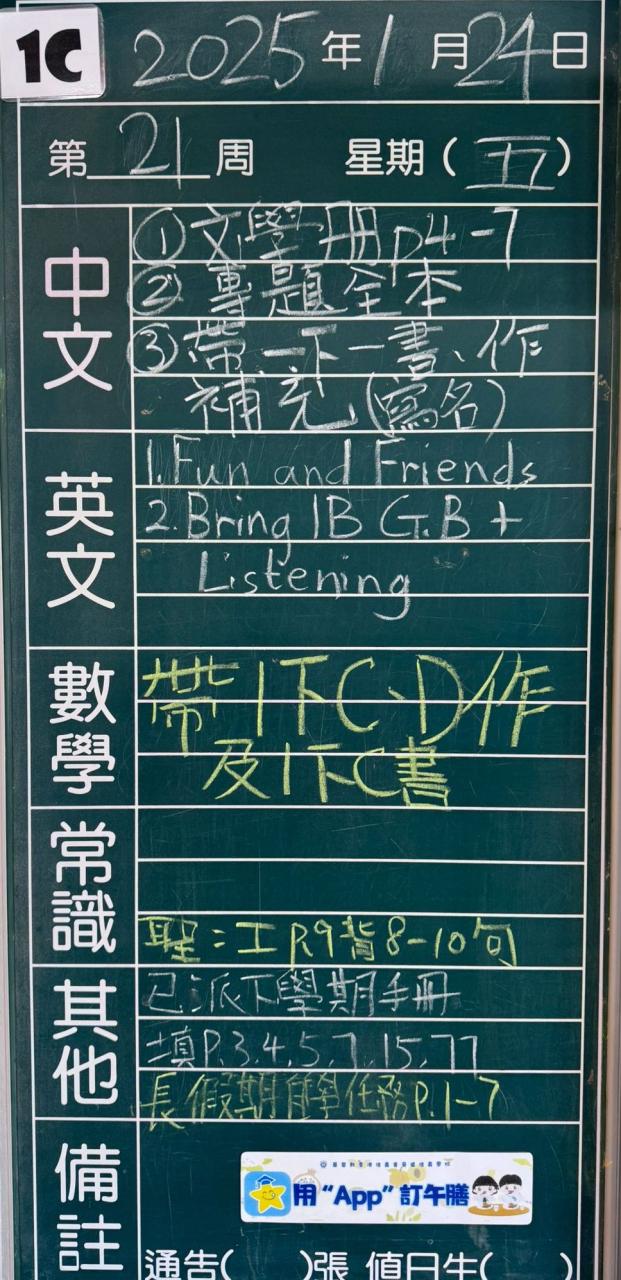 1C
2025年1月24日
第21周 星期(五)
中文
①文學冊p4-7
②專題全本
③帶一下一書、作
補充(寫名)
英文
1.Fun and Friends
2.Bring 1B G.B +
Listening
數學
帶1下C、D作
及1下C書
常識
聖:工P.9背8-10句
其他
已派下學期手冊
填P.3,4,5,7,15,77
長假期自學任務P.1-7
備註
用“App”訂午膳
通告( )張 值日生( )